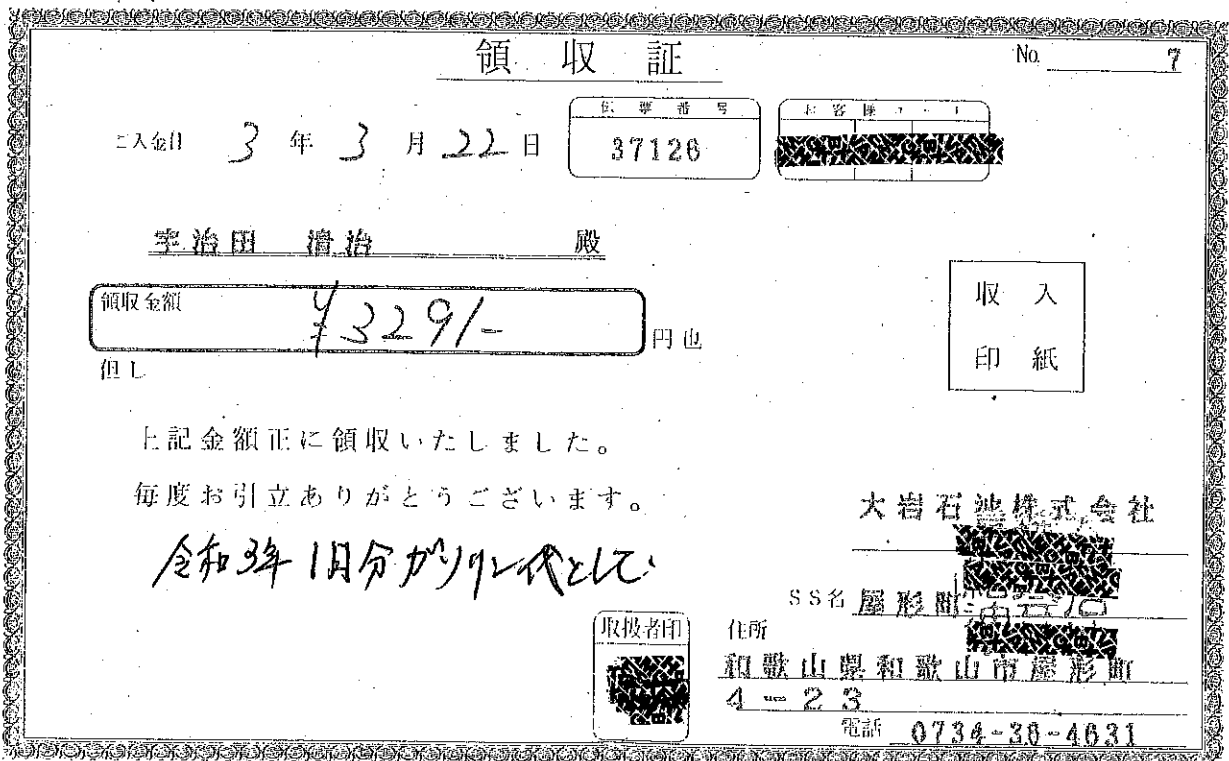 領収証
No. 7
ご入金日 3年3月22日
伝票番号
37126
宇治田 清治 殿
領収金額 ¥3291- 円也
但し
収入
印紙
上記金額正に領収いたしました。
毎度お引立ありがとうございます。
令和3年1月分ガソリン代として
大岩石油株式会社
SS名 屋形町
取扱者印
住所
和歌山県和歌山市屋形町
4-23
電話 0734-36-4631